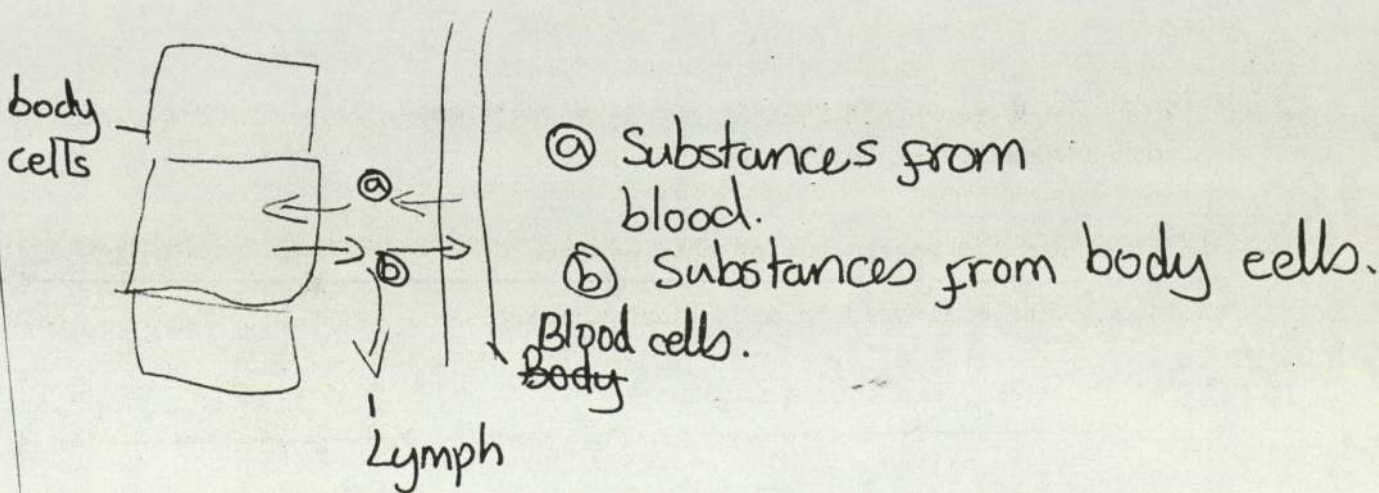 body
cells
ⓐ
ⓑ
ⓐ Substances from
blood.
ⓑ Substances from body cells.
Blood cells.
Body
Lymph